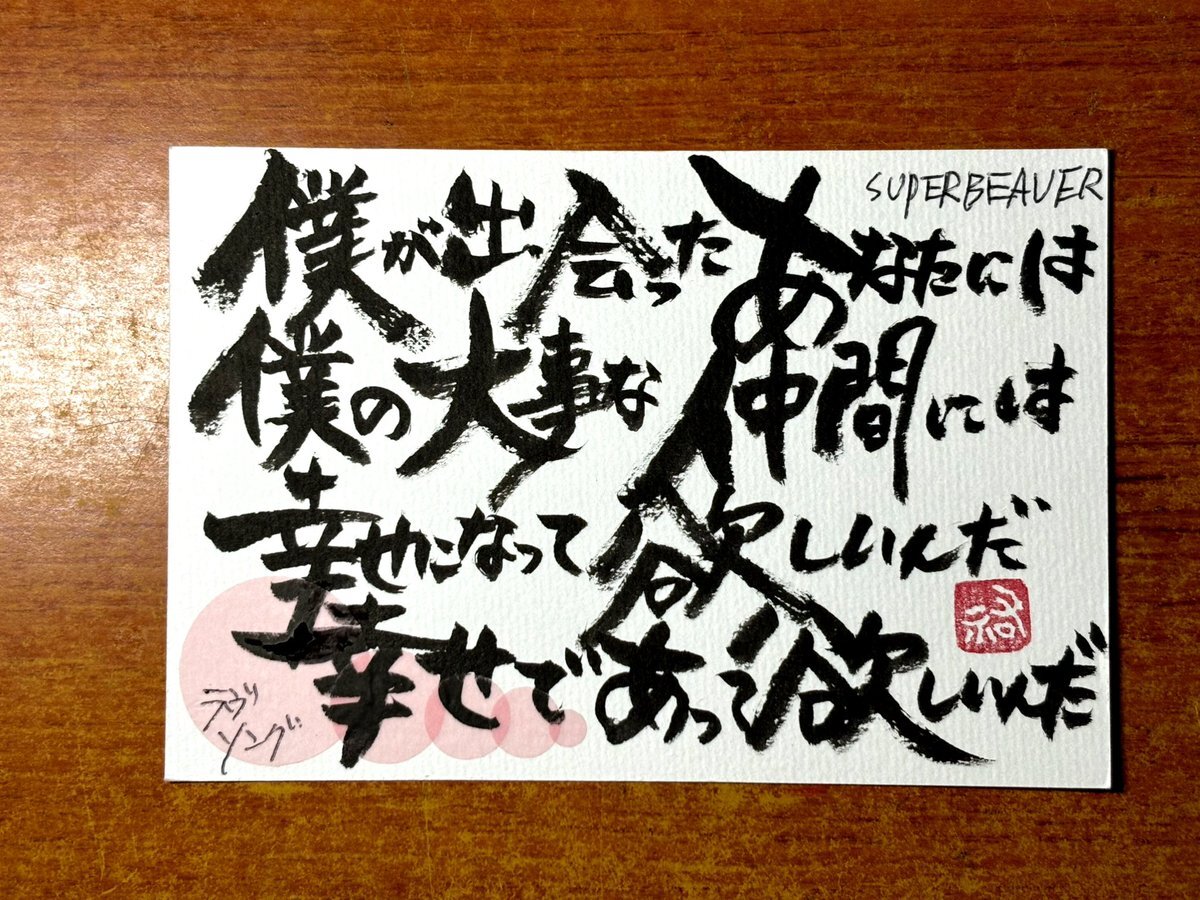 SUPERBEAVER
僕が出会ったあなたには
僕の大事な仲間には
幸せになって欲しいんだ
幸せであって欲しいんだ